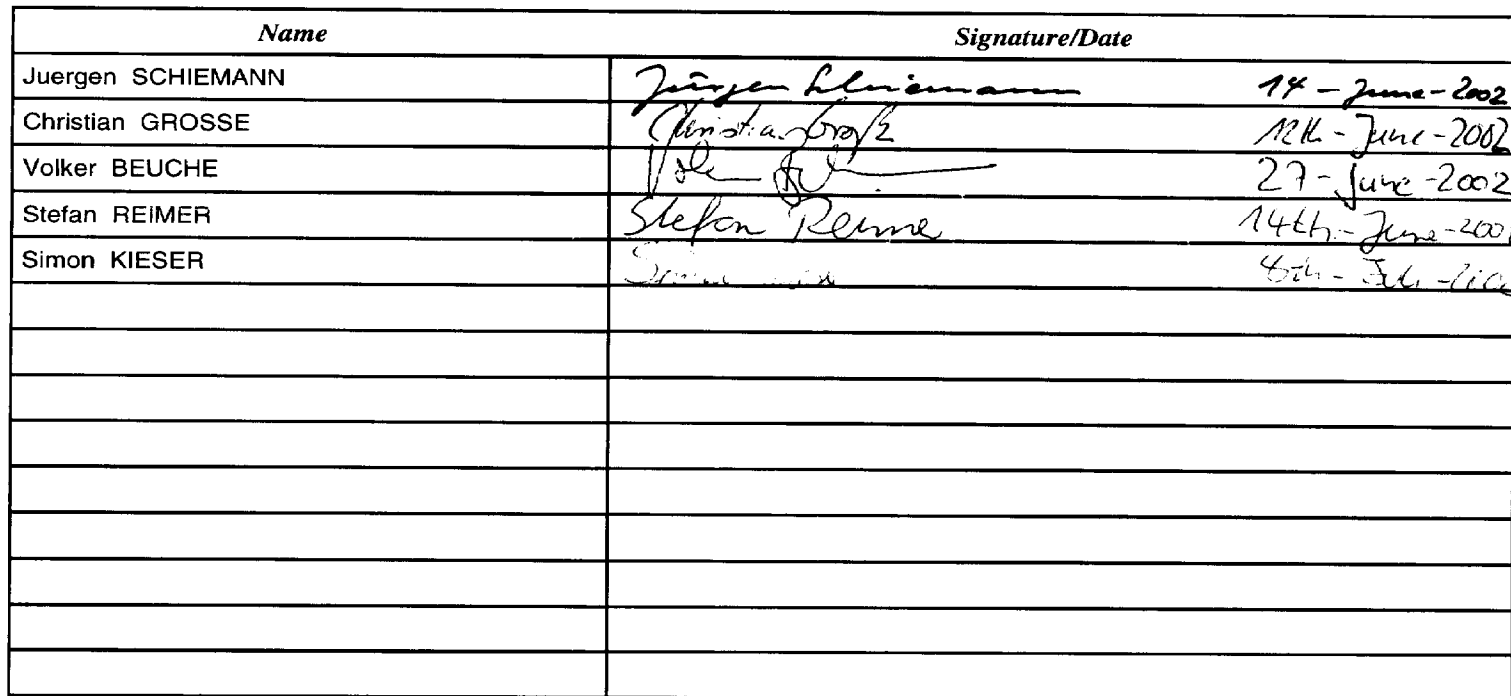 Name Signature/Date
Juergen SCHIEMANN Jürgen Schiemann 14-June-2002
Christian GROSSE Christian Große 12th-June-2002
Volker BEUCHE Volker 27-June-2002
Stefan REIMER Stefan Reimer 14th-June-200
Simon KIESER